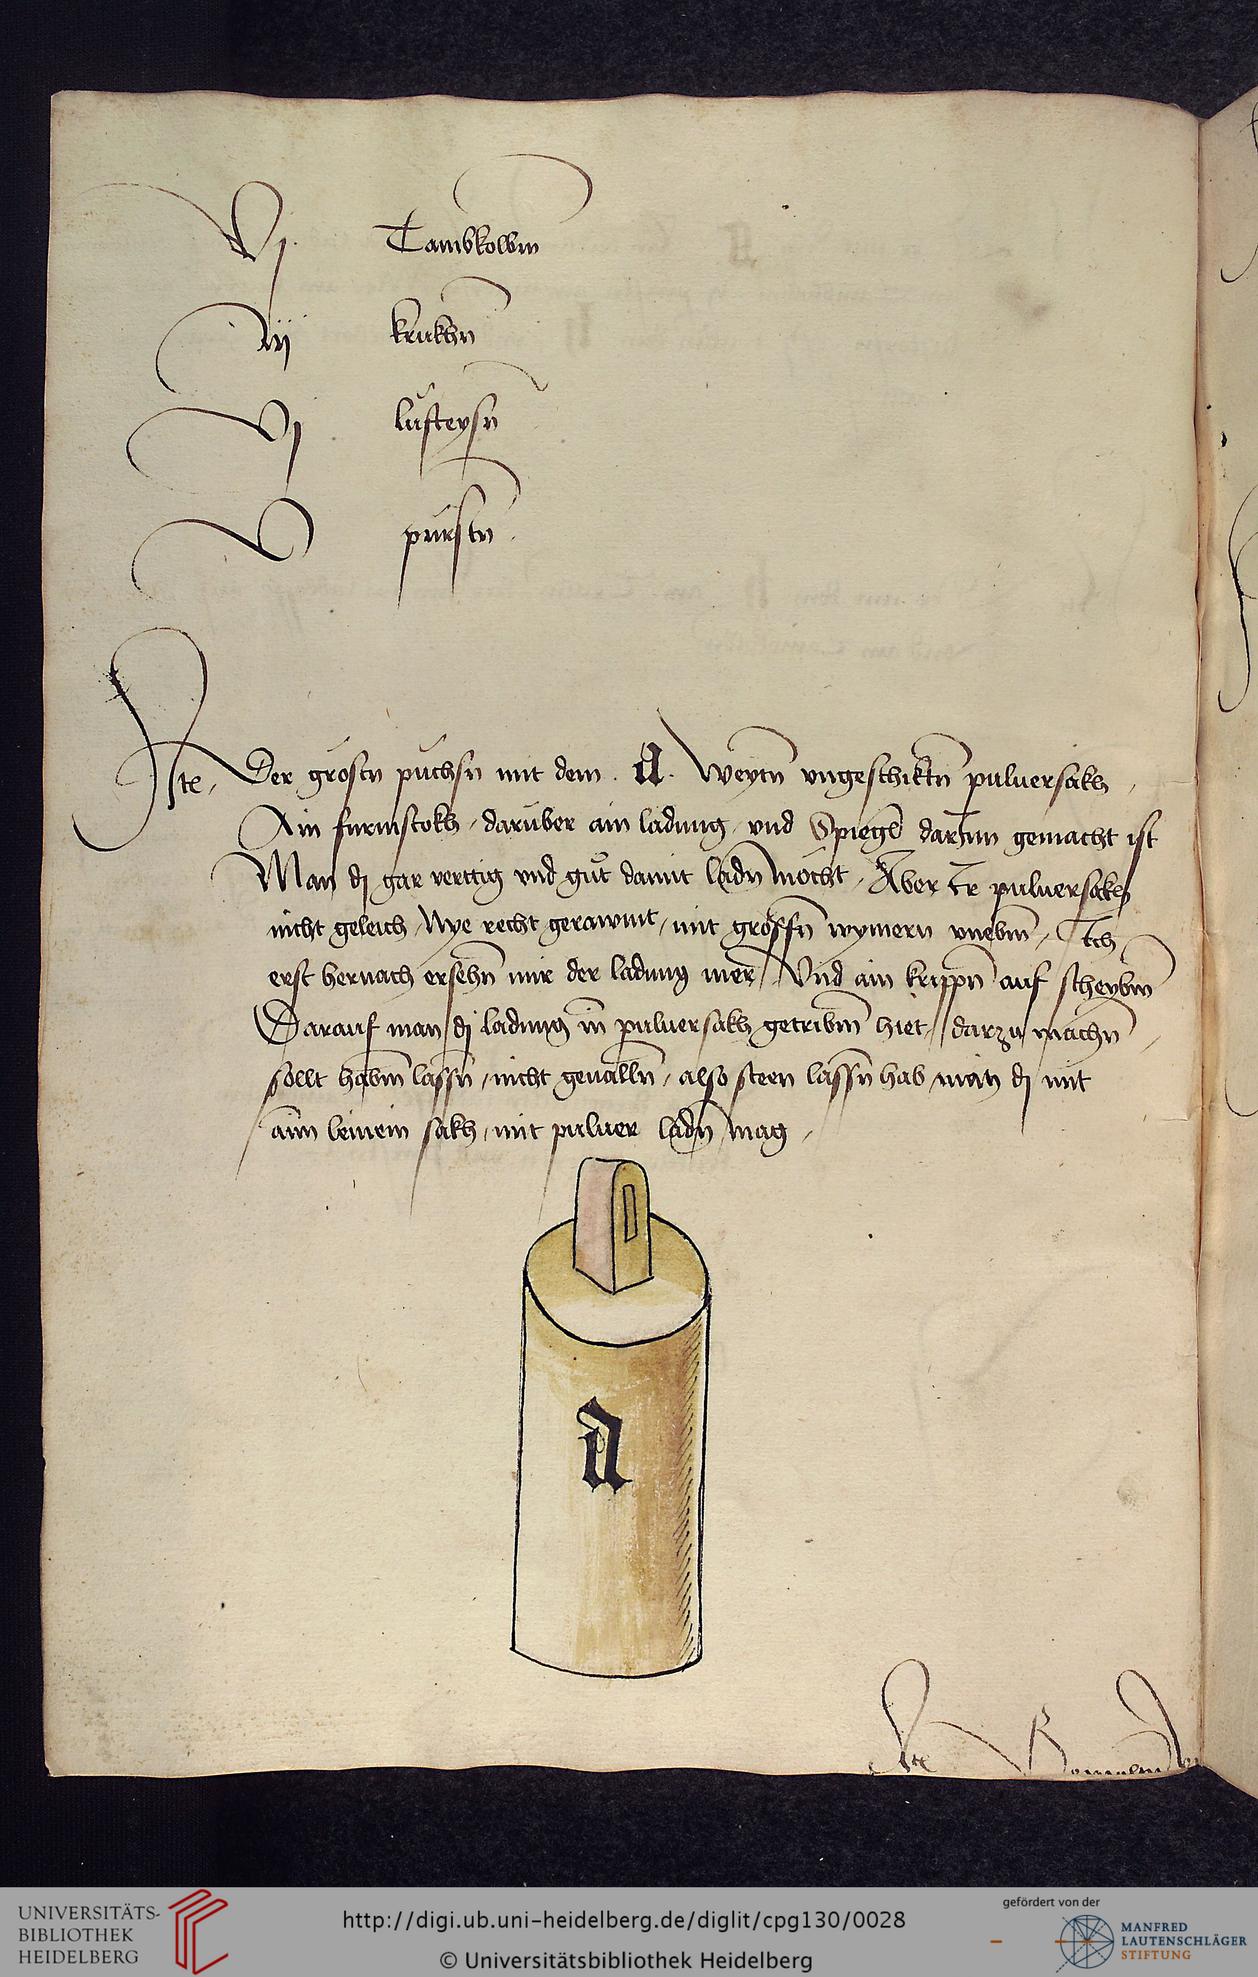 Vj Tambkolbm
iij krukhn
Vj lufteysn
V purstn
Ite. Der grosen puchsn mit dem . A . Weytn vngeschiktn puluersakh
Ain furmstokh, darüber ain ladung, vnd Spiegel darinn gemacht ist
Man dj gar verttig vnd gut damit ladn mocht, Aber Ir puluersakh
nicht geleich, Nye recht gerawmt, mit grossn wymern vnebm, Ich
erst hernach ersehn mir der ladung mer, Vnd ain krippn auf scheybm
Darauf man dj ladung in puluersakh getribm hiet, darzu machn
sollt habm lassn, nicht geualln, also steen lassn hab, man dj mit
ainn leinein sakh, mit puluer ladn mag,
a
Ite
UNIVERSITÄTS-
BIBLIOTHEK
HEIDELBERG
http://digi.ub.uni-heidelberg.de/diglit/cpg130/0028
© Universitätsbibliothek Heidelberg
gefördert von der
MANFRED
LAUTENSCHLÄGER
STIFTUNG